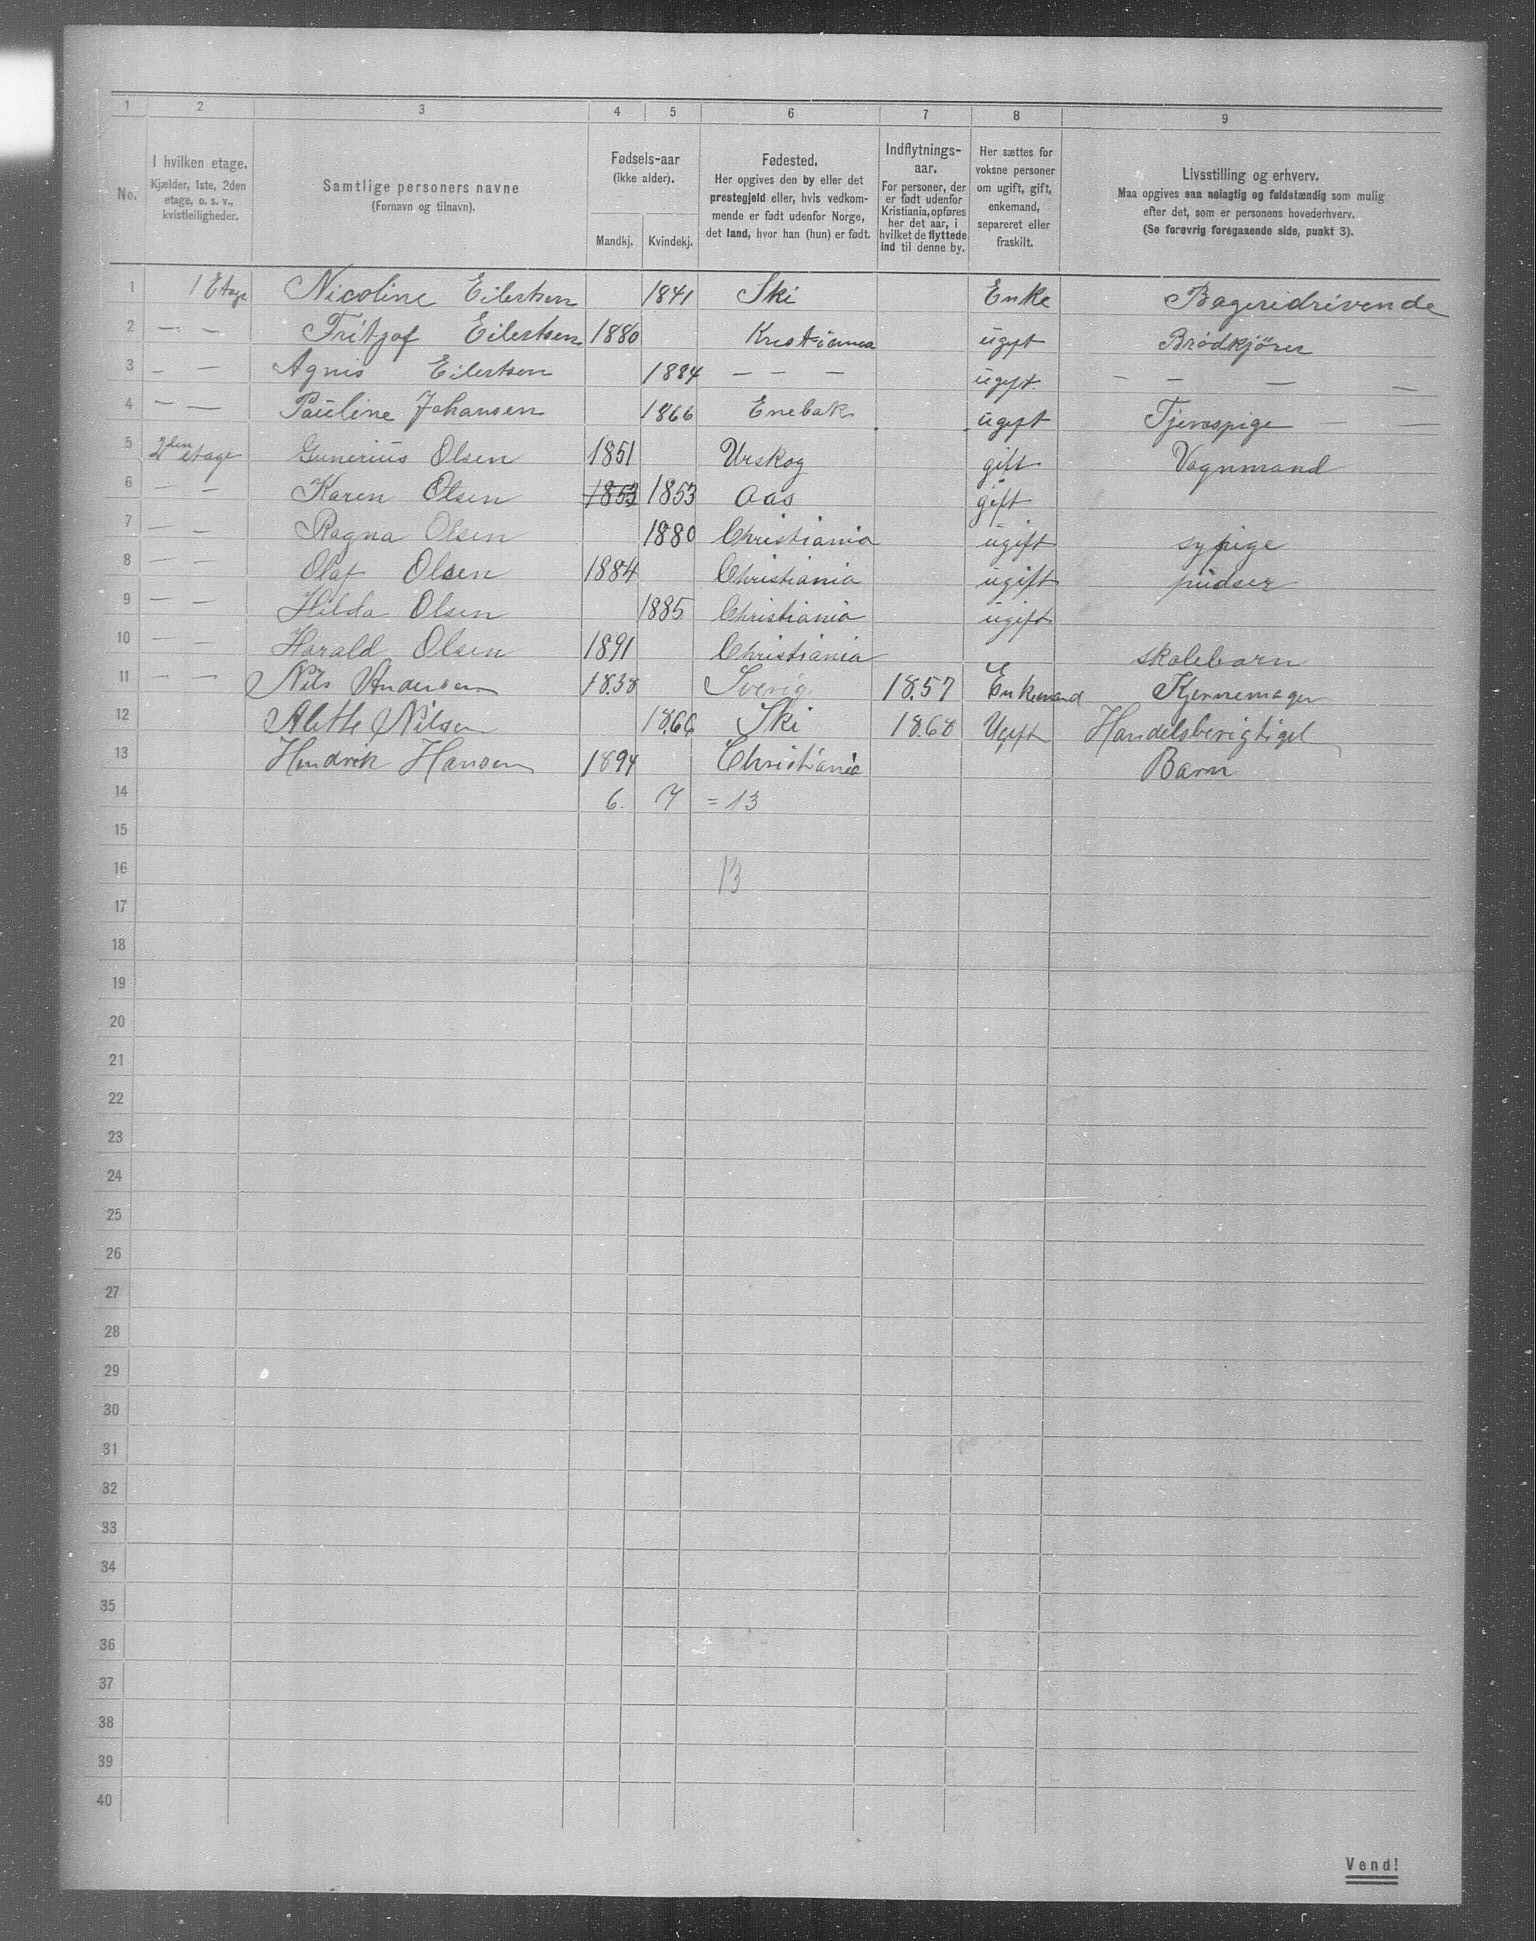 1 2 3 4 5 6 7 8 9
No.
I hvilken etage.
Kjælder, 1ste, 2den
etage, o. s. v.,
kvistleiligheder.
Samtlige personers navne
(Fornavn og tilnavn).
Fødsels-aar
(ikke alder).
Mandkj. Kvindekj.
Fødested.
Her opgives den by eller det
prestegjeld eller, hvis vedkom-
mende er født udenfor Norge,
det land, hvor han (hun) er født.
Indflytnings-
aar.
For personer, der
er født udenfor
Kristiania, opføres
her det aar, i
hvilket de flyttede
ind til denne by.
Her sættes for
voksne personer
om ugift, gift,
enkemand,
separeret eller
fraskilt.
Livsstilling og erhverv.
Maa opgives saa nøiagtig og fuldstændig som mulig
efter det, som er personens hovederhverv.
(Se forøvrig foregaaende side, punkt 3).
1 1 Etage Nicoline Eilertsen 1841 Ski Enke Bageridrivende
2 — — Fritjof Eilertsen 1880 Kristiania ugift Brødkjører
3 — — Agnis Eilertsen 1884 — — — ugift — — — —
4 — — Pauline Johansen 1866 Enebak ugift Tjenespige — —
5 2den etage Gunerius Olsen 1851 Urskog gift Vognmand
6 — — Karen Olsen 1853 1853 Aas gift
7 — — Ragna Olsen 1880 Christiania ugift sypige
8 — — Olaf Olsen 1884 Christiania ugift pudser
9 — — Hilda Olsen 1885 Christiania ugift
10 — — Harald Olsen 1891 Christiania skolebarn
11 — — Nils Andersen 1838 Sverig 1857 Enkemand Kjernemager
12 Alette Nilsen 1866 Ski 1868 Ugift Handelsberigtiget
13 Hendrik Hansen 1894 Christiania Barn
14 6. 7 = 13
15
16 13
17
18
19
20
21
22
23
24
25
26
27
28
29
30
31
32
33
34
35
36
37
38
39
40
Vend!